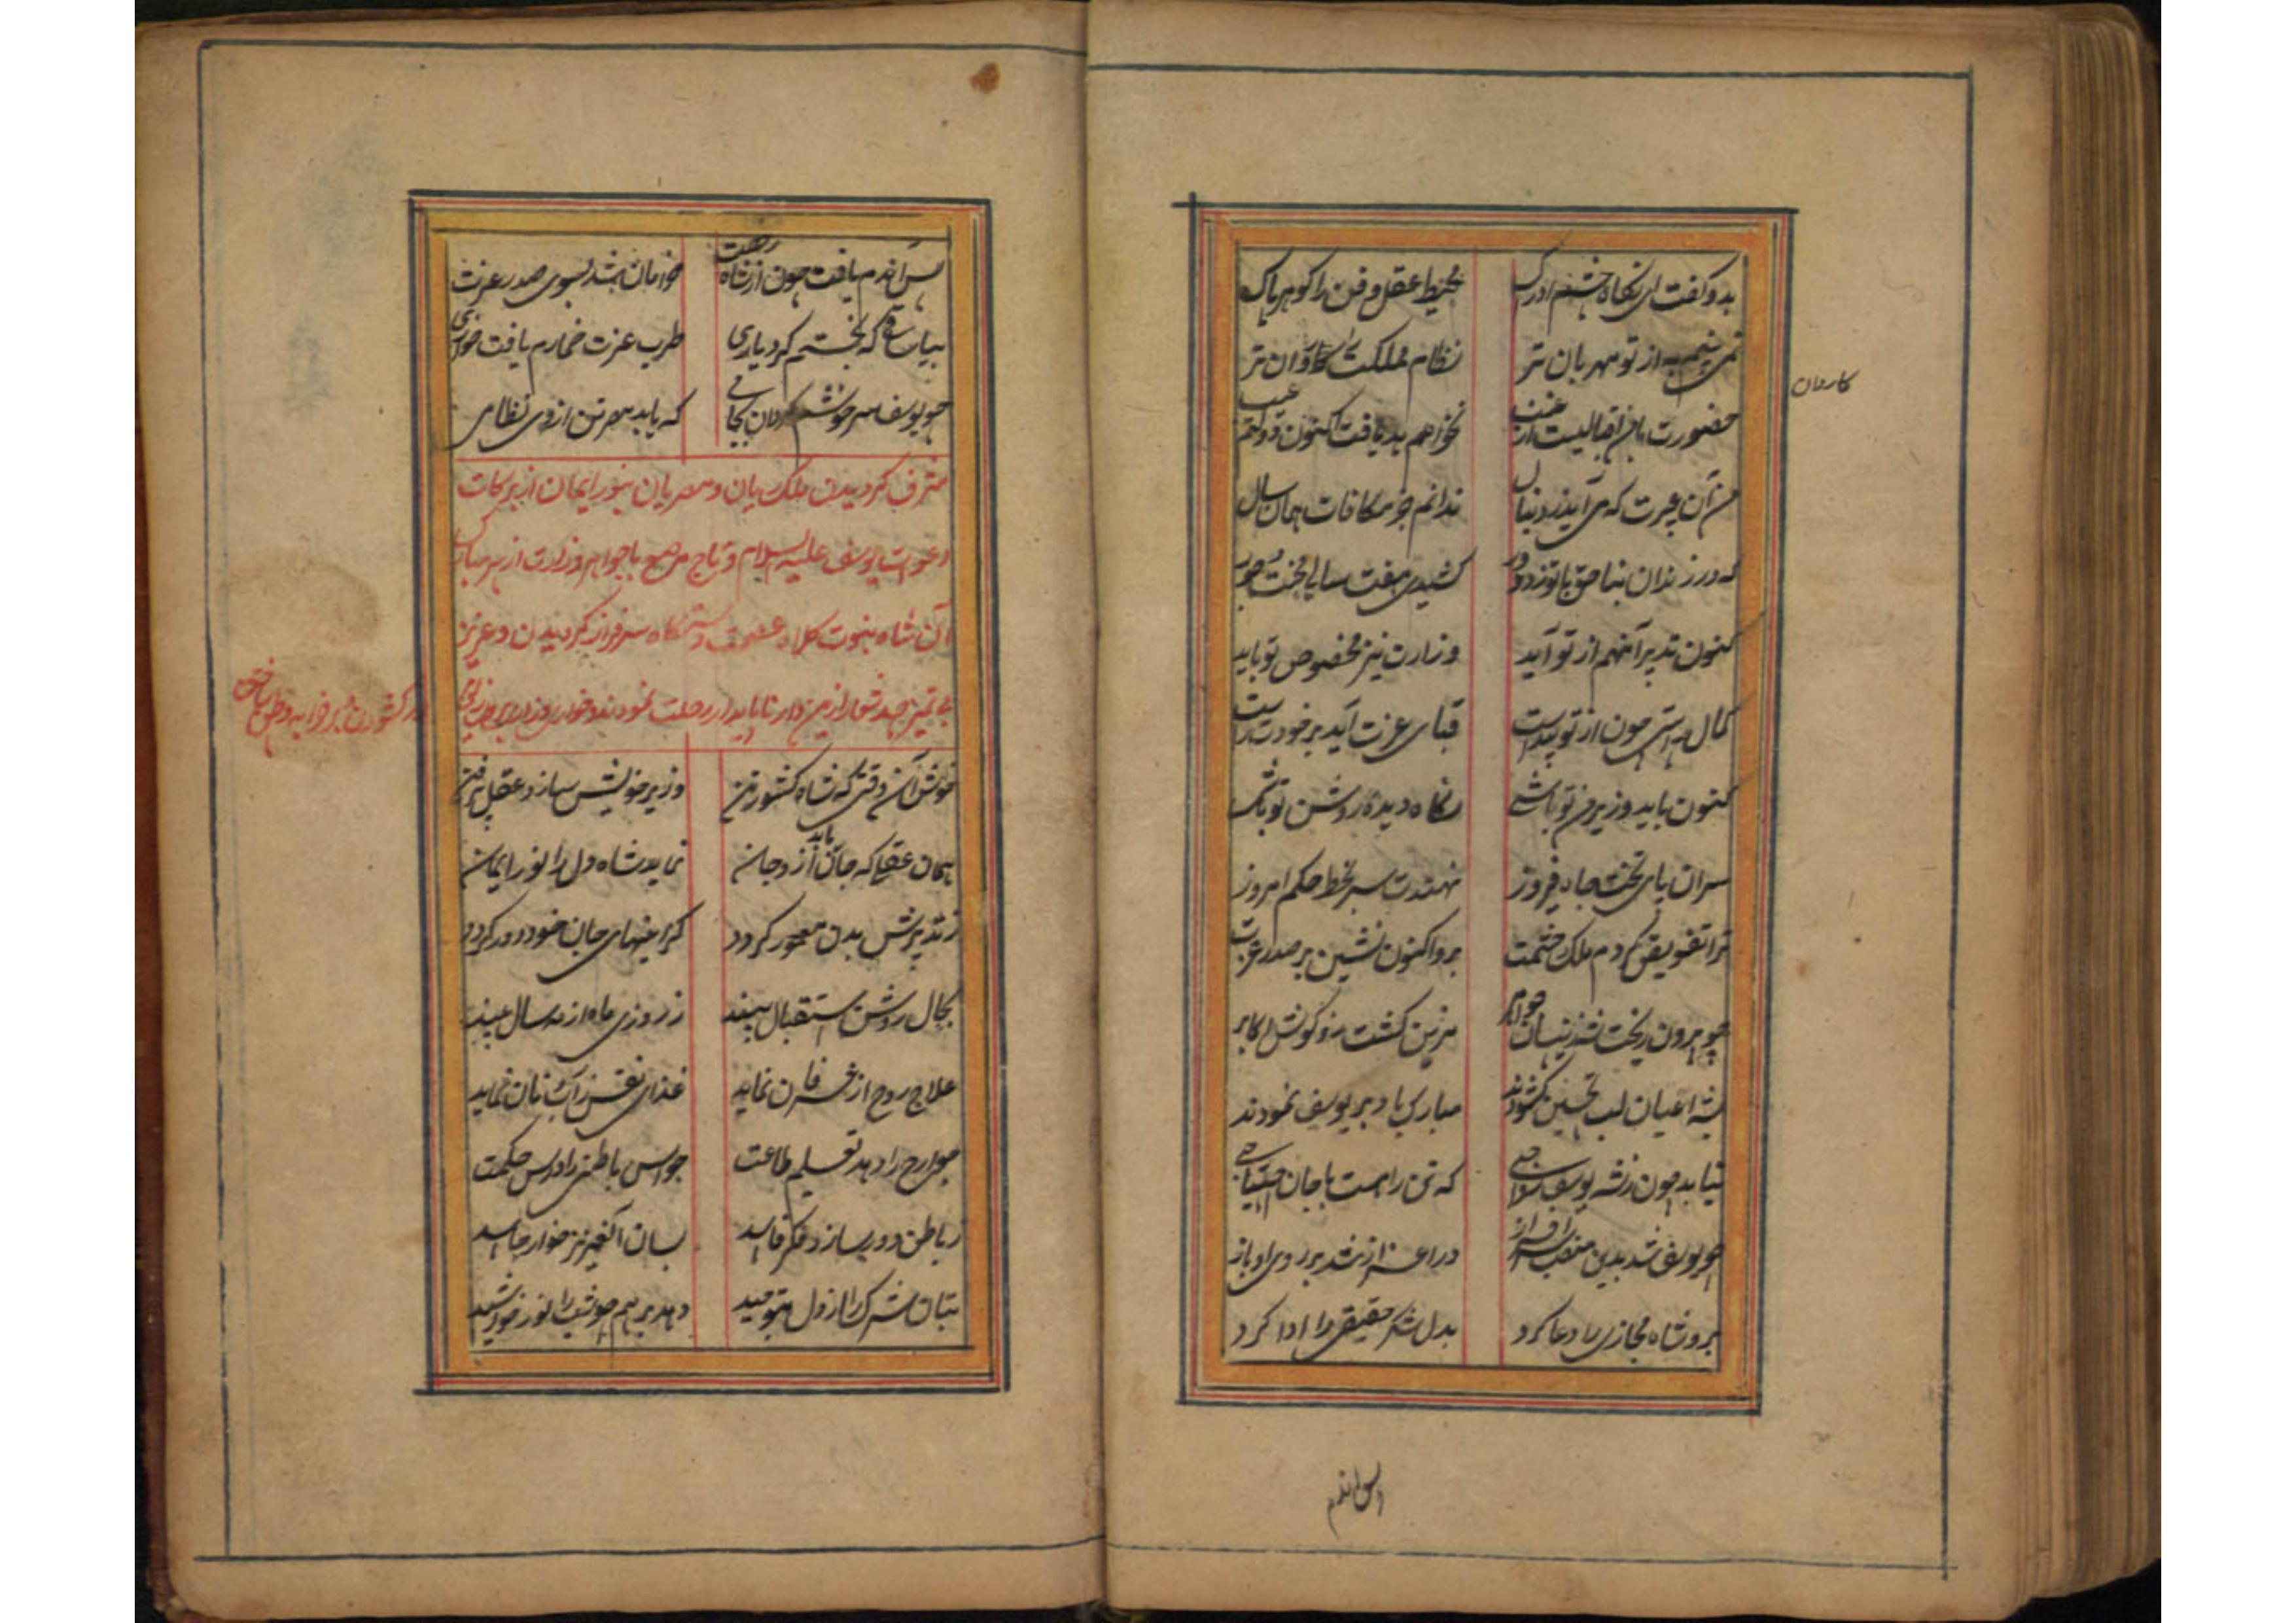 بدو گفت ای نگاه چشم ادراک محیط عقل و فن را گوهر پاک
نمی بینم به از تو مهربان تر نظام مملکت را کاردان تر
کاردان
حضورت این اقبالیست از غیب نخواهم بد یافت اکنون
من آن چیزت که می آید ز دنبال ندانم جز مکافات همان سال
که در زندان بناحق با تو زد دور کشیدی هفت سالی محنت جور
کنون تدبیر آنهم از تو آید وزارت نیز مخصوص تو باید
کمال راستی چون از تو پیداست قبای عزت آید بر خودت راست
کنون باید وزیر من تو باشی نگاه دیده روشن تو باشی
سران پای تخت جاه فیروز نهندت سر بخط حکم امروز
ترا تفویض کردم ملک حشمت برو اکنون نشین بر صدر عزت
چو بیرون ریخت شه زینسان جواهر مزین گشت زو گوش اکابر
شه اعیان لب تحسین گشودند مبارک باد بر یوسف نمودند
نیابد چون ز شه یوسف که تن را هست با جان احتیاجی
چو یوسف شد بدین منصب سرافراز در اعزاز شد بر روی او باز
برو شاه مجازی را دعا کرد بدل شکر حقیقی را ادا کرد
پس اندم
پس اندم یافت چون از شاه رخصت خرامان شد بسوی صدر عزت
بیا ساقی که بختم کرد یاری طرب عزت خمارم یافت خواری
چو یوسف سر خوشم گردان بجامی که یابد مصر تن از وی نظامی
مشرف گردیدن ملک ریان و مصریان بنور ایمان از برکات
دعوات یوسف علیه السلام و تاج مرصع با جواهر وزارت از سر مبارک
آن شاه نبوت کلاه عصمت دستگاه سرفراز گردیدن و عزیز
بی تمیز ازین دار ناپایدار رحلت نمودند
خوش آن وقتی که شاه کشور تن وزیر خویش سازد عقل پر فن
همان عقلی که جان یابد ازو جان نماید شاه دل را نور ایمان
ز تدبیرش بدن معمور گردد گرانیهای جان خود دور گردد
بحال روشن استقبال بیند ز روزی ماه از مه سال بیند
علاج روح از عرفان نماید غذای نفس ز آب نان نماید
جوارح را دهد تعلیم طاعت حواس باطنی را درس حکمت
ز باطن دور سازد فکر فاسد بسان آنعزیز خوار حاسد
بتان شرک را از دل بتوحید دهد بر هم چو شب را نور خورشید